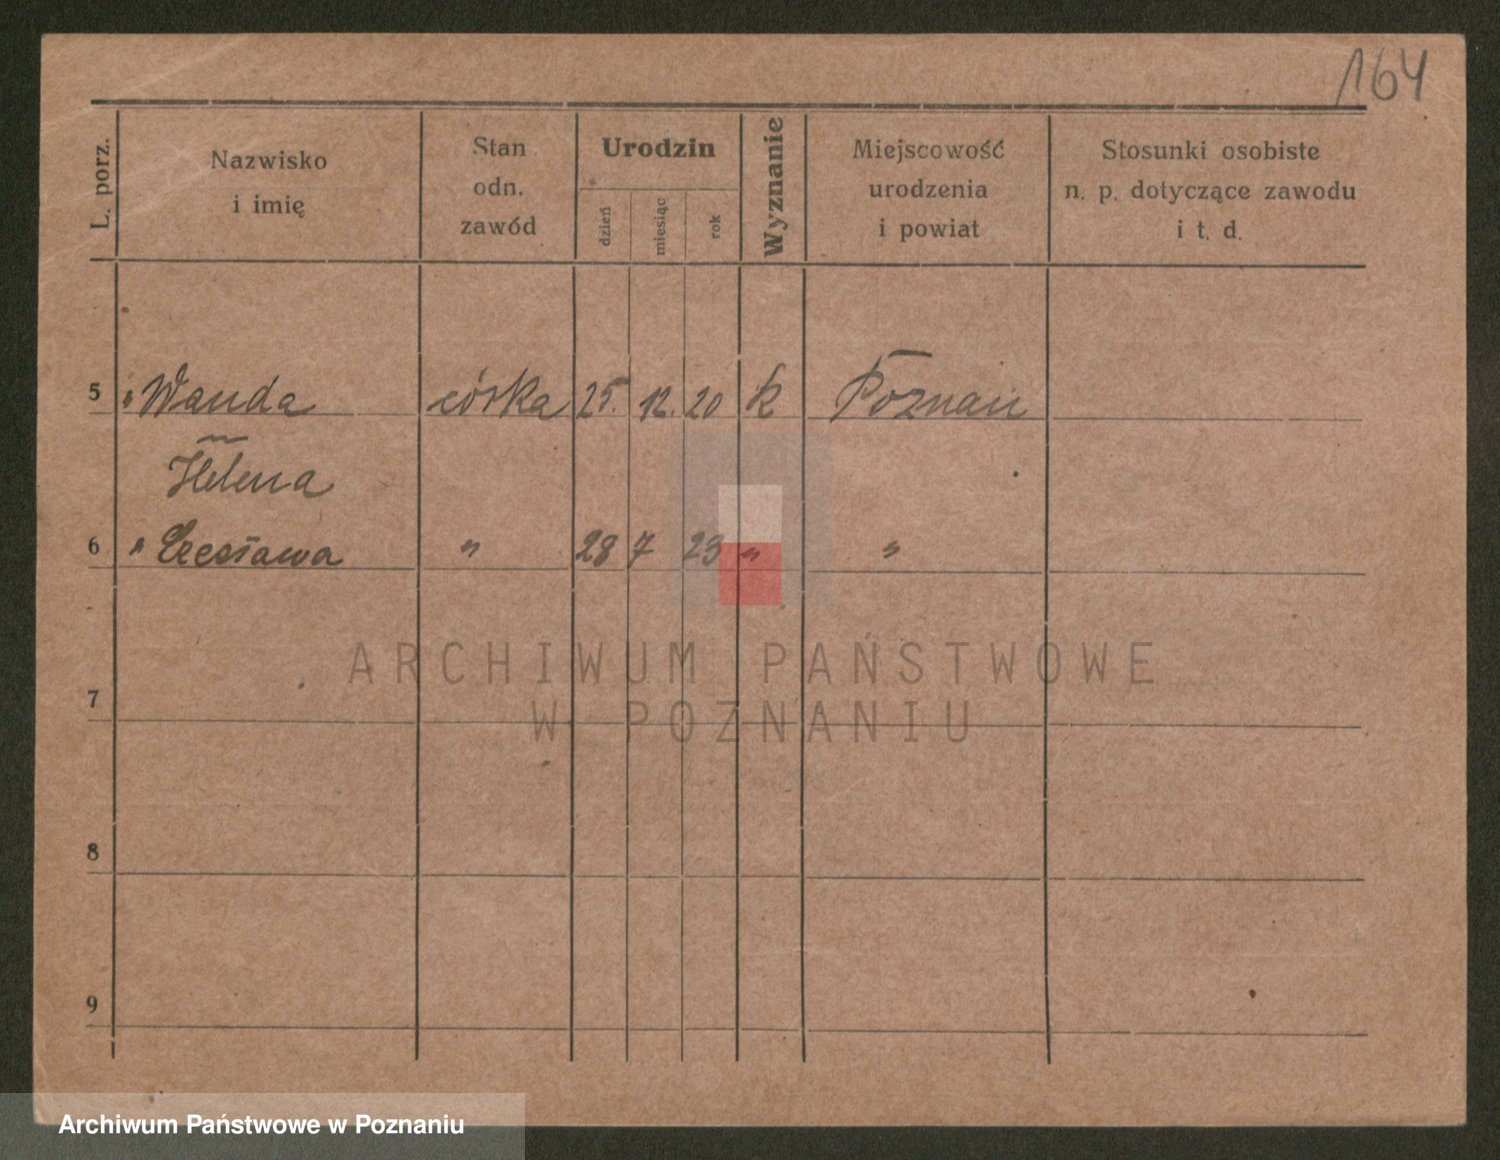 164
L. porz.
Nazwisko
i imię
Stan
odn.
zawód
Urodzin
dzień
miesiąc
rok
Wyznanie
Miejscowość
urodzenia
i powiat
Stosunki osobiste
n. p. dotyczące zawodu
i t. d.
5 " Wanda córka 25. 12. 20 k Poznań
Helena
6 " Czesława " 28 7 23 " "
ARCHIWUM PAŃSTWOWE
W POZNANIU
7
8
9
Archiwum Państwowe w Poznaniu